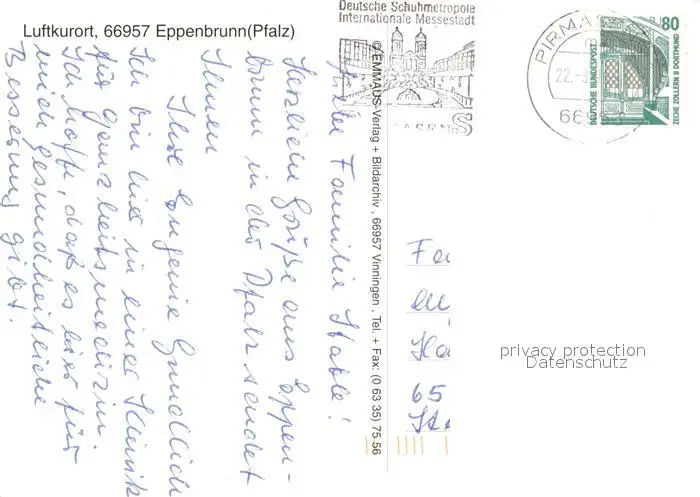 Luftkurort, 66957 Eppenbrunn(Pfalz)
Deutsche Schuhmetropole
Internationale Messestadt
PIRMAS
22.
66
80
DEUTSCHE BUNDESPOST
ZECHE ZOLLERN II DORTMUND
© EMMAUS-Verlag + Bildarchiv , 66957 Vinningen , Tel. + Fax: (0 63 35) 75 56
Familie
Herzliche Grüße aus Eppen-
brunn in der Pfalz sendet
Ihnen
Ihre Eugenie Gundlich
Ich bin hier in einer Klinik
für Ganzheitsmedizin.
Ich hoffe, daß es hier für
mich gesundheitliche
Besserung gibt!
Fa
Ha
65
privacy protection
Datenschutz